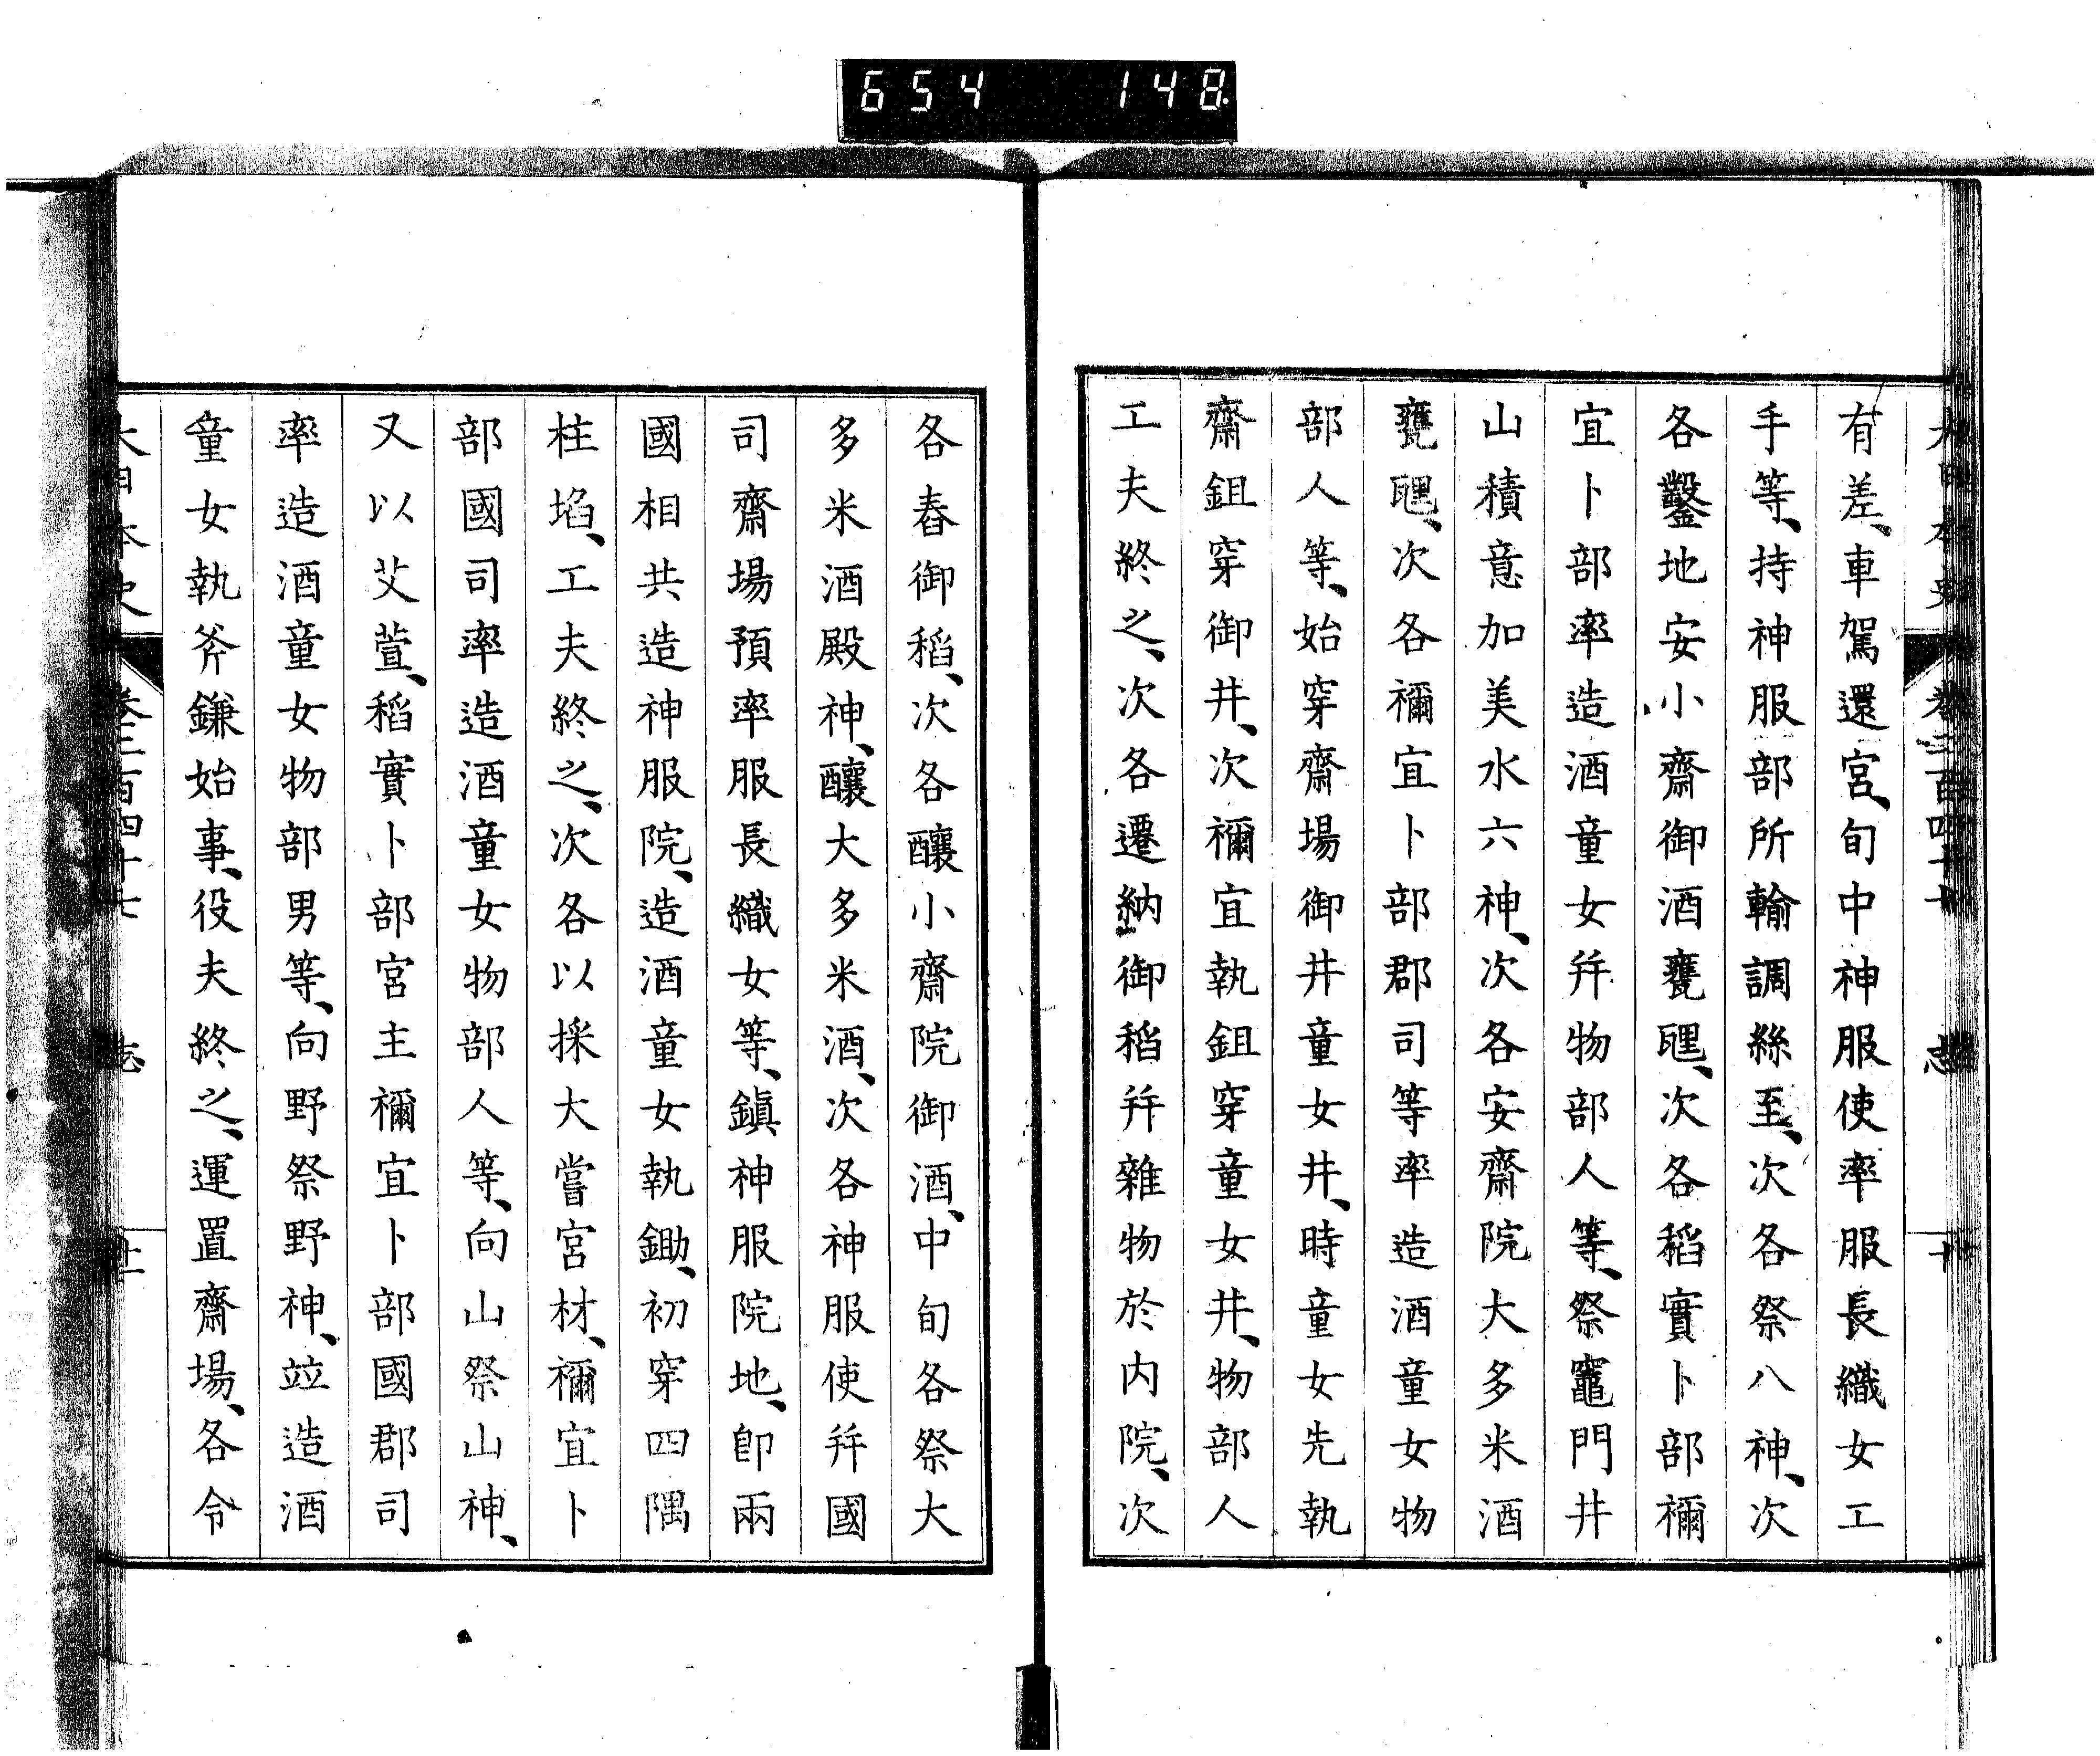 654 148
大日本史 卷三百四十七 志 十
有差、車駕還宮、旬中神服使率服長織女工
手等、持神服部所輸調絲至、次各祭八神、次
各鑿地安小齋御酒甕𤭖、次各稻實卜部禰
宜卜部率造酒童女幷物部人等、祭竈門井
山積意加美水六神、次各安齋院大多米酒
甕𤭖、次各禰宜卜部郡司等率造酒童女物
部人等、始穿齋場御井童女井、時童女先執
齋鉏穿御井、次禰宜執鉏穿童女井、物部人
工夫終之、次各遷納御稻幷雜物於内院、次
各舂御稻、次各釀小齋院御酒、中旬各祭大
多米酒殿神、釀大多米酒、次各神服使幷國
司齋場預率服長織女等、鎭神服院地、卽兩
國相共造神服院、造酒童女執鋤、初穿四隅
柱埳、工夫終之、次各以採大嘗宮材、禰宜卜
部國司率造酒童女物部人等、向山祭山神、
又以艾萱、稻實卜部宮主禰宜卜部國郡司
率造酒童女物部男等、向野祭野神、竝造酒
童女執斧鎌始事、役夫終之、運置齋場、各令
大日本史 卷三百四十七 志 十一